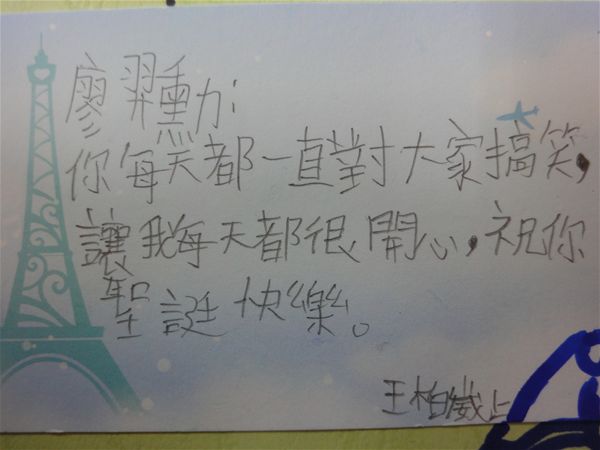 廖羿勳：
你每天都一直對大家搞笑，
讓我每天都很開心，祝你
聖誕快樂。
王柏崴上